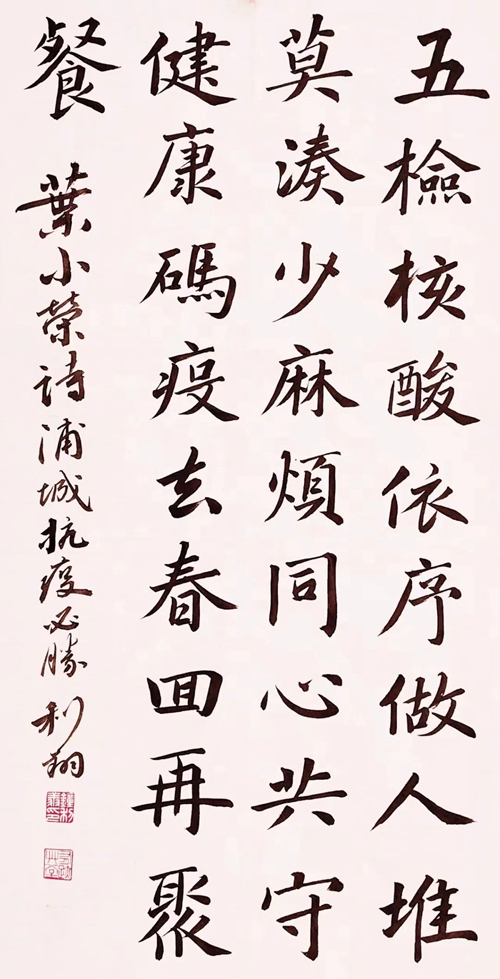 五檢核酸依序做人堆
莫湊少麻煩同心共守
健康碼疫去春回再聚
餐 葉小榮詩浦城抗疫必勝 利翔